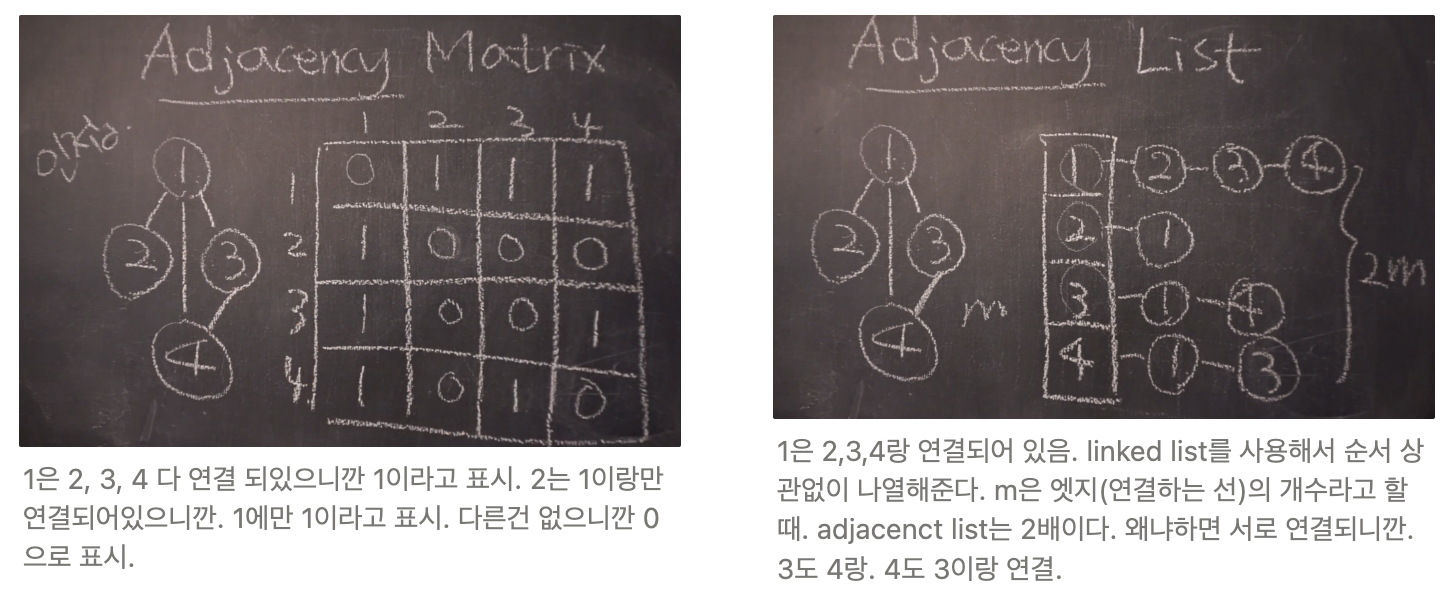 Adjacency Matrix
1 2 3 4
1 1 0 1 1 1
2 3 2 1 0 0 0
3 1 0 0 1
4 4 1 0 1 0
1은 2, 3, 4 다 연결 되있으니깐 1이라고 표시. 2는 1이랑만
연결되어있으니깐. 1에만 1이라고 표시. 다른건 없으니깐 0
으로 표시.
Adjacency List
1 1 2 3 4
2 3 2 1
m 3 1 4 2m
4 4 1 3
1은 2,3,4랑 연결되어 있음. linked list를 사용해서 순서 상
관없이 나열해준다. m은 엣지(연결하는 선)의 개수라고 할
때. adjacenct list는 2배이다. 왜냐하면 서로 연결되니깐.
3도 4랑. 4도 3이랑 연결.